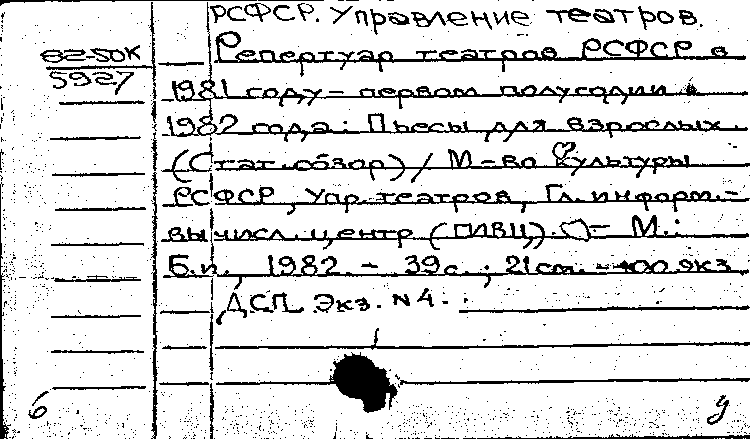 РСФСР. Управление театров.
82-50К
5927
Репертуар театров РСФСР в
1981 году - первом полугодии
1982 года: Пьесы для взрослых.
(Стат. обзор) / М-во культуры
РСФСР, Упр. театров, Гл. информ.-
вычисл. центр (ГИВЦ). - М.:
Б.и., 1982. - 39с.; 21см. - 100 экз.
ДСП. Экз. N4.
6
У